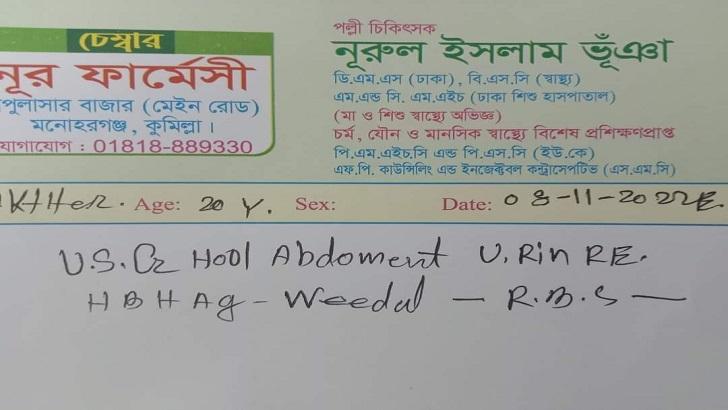 চেম্বার
নূর ফার্মেসী
পুলাসার বাজার (মেইন রোড)
মনোহরগঞ্জ, কুমিল্লা।
যোগাযোগ : 01818-889330
পল্লী চিকিৎসক
নূরুল ইসলাম ভূঁঞা
ডি.এম.এস (ঢাকা), বি.এস.সি (স্বাস্থ্য)
এম.এন্ড সি. এম.এইচ (ঢাকা শিশু হাসপাতাল)
(মা ও শিশু স্বাস্থ্যে অভিজ্ঞ)
চর্ম, যৌন ও মানসিক স্বাস্থ্যে বিশেষ প্রশিক্ষণপ্রাপ্ত
পি.এম.এইচ.সি এন্ড পি.এস.সি (ইউ.কে)
এফ.পি. কাউন্সিলিং এন্ড ইনজেক্টবল কন্ট্রাসেপটিভ (এস.এম.সি)
KtHer. Age: 20 Y. Sex: Date: 08-11-2022E.
U.S.G Hool Abdoment U.Rin RE.
HBHAg - Weedal - R.B.S -